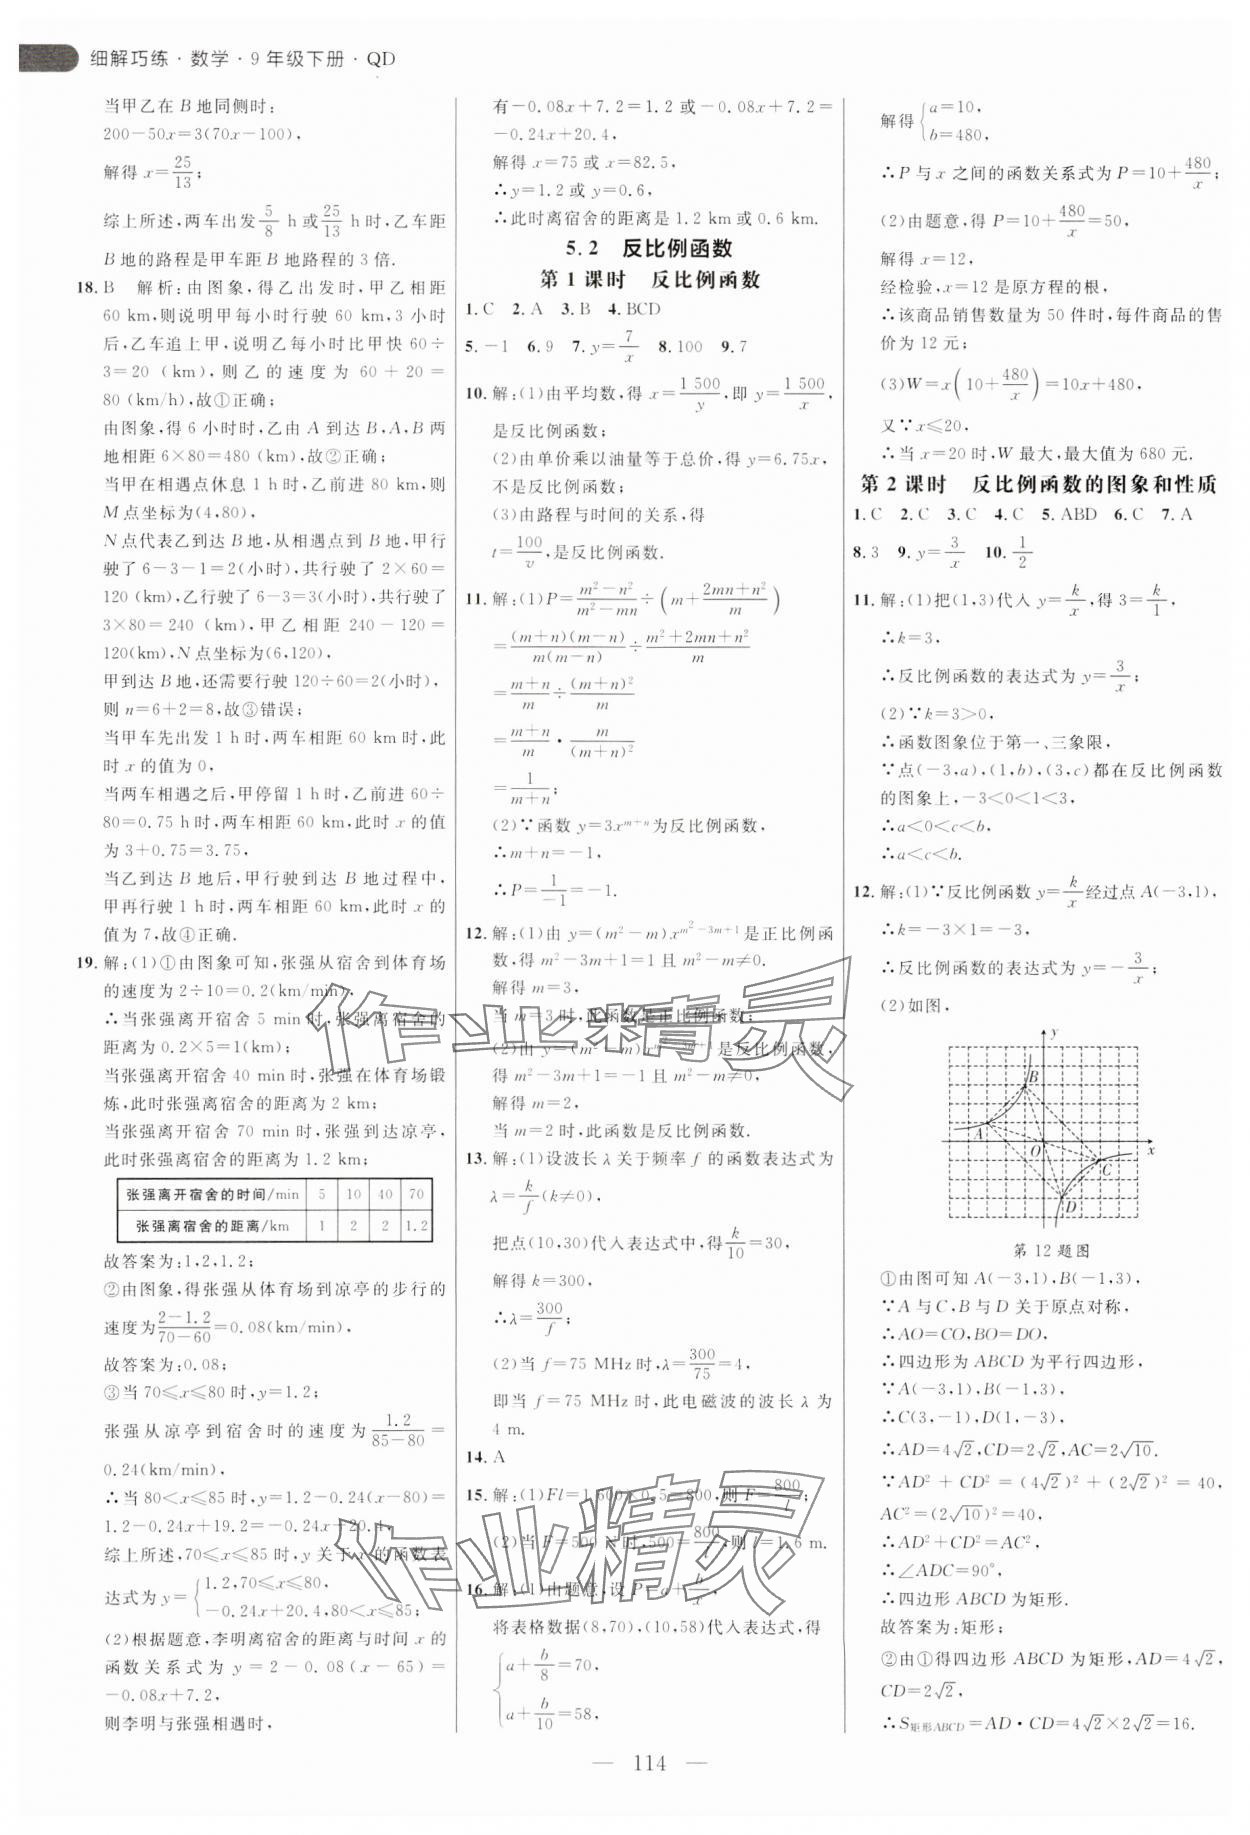 细解巧练·数学·9年级下册·QD
当甲乙在 B 地同侧时:
200-50x=3(70x-100),
解得 x=25/13;
综上所述,两车出发 5/8 h或 25/13 h时,乙车距
B 地的路程是甲车距 B 地路程的 3 倍.
18. B 解析:由图象,得乙出发时,甲乙相距
60 km,则说明甲每小时行驶 60 km,3 小时
后,乙车追上甲,说明乙每小时比甲快 60÷
3=20 (km),则乙的速度为 60+20=
80 (km/h),故①正确;
由图象,得 6 小时时,乙由 A 到达 B,A,B 两
地相距 6×80=480 (km),故②正确;
当甲在相遇点休息 1 h 时,乙前进 80 km,则
M 点坐标为(4,80),
N 点代表乙到达 B 地,从相遇点到 B 地,甲行
驶了 6-3-1=2(小时),共行驶了 2×60=
120(km),乙行驶了 6-3=3(小时),共行驶了
3×80=240 (km),甲乙相距 240-120=
120(km),N 点坐标为(6,120),
甲到达 B 地,还需要行驶 120÷60=2(小时),
则 n=6+2=8,故③错误;
当甲车先出发 1 h 时,两车相距 60 km,此
时 x 的值为 0,
当两车相遇之后,甲停留 1 h 时,乙前进 60÷
80=0.75 h时,两车相距 60 km,此时 x 的值
为 3+0.75=3.75,
当乙到达 B 地后,甲行驶到达 B 地过程中,
甲再行驶 1 h 时,两车相距 60 km,此时 x 的
值为 7,故④正确.
19. 解:(1)①由图象可知,张强从宿舍到体育场
的速度为 2÷10=0.2(km/min),
∴当张强离开宿舍 5 min 时,张强离宿舍的
距离为 0.2×5=1(km);
当张强离开宿舍 40 min 时,张强在体育场锻
炼,此时张强离宿舍的距离为 2 km;
当张强离开宿舍 70 min 时,张强到达凉亭,
此时张强离宿舍的距离为 1.2 km;
张强离开宿舍的时间/min 5 10 40 70
张强离宿舍的距离/km 1 2 2 1.2
故答案为:1,2,1.2;
②由图象,得张强从体育场到凉亭的步行的
速度为 (2-1.2)/(70-60)=0.08(km/min),
故答案为:0.08;
③当 70≤x≤80 时,y=1.2;
张强从凉亭到宿舍时的速度为 1.2/(85-80)=
0.24(km/min),
∴当 80<x≤85 时,y=1.2-0.24(x-80)=
1.2-0.24x+19.2=-0.24x+20.4,
综上所述,70≤x≤85 时,y 关于 x 的函数表
达式为 y={1.2,70≤x≤80,
-0.24x+20.4,80<x≤85;
(2)根据题意,李明离宿舍的距离与时间 x 的
函数关系式为 y=2-0.08(x-65)=
-0.08x+7.2,
则李明与张强相遇时,
有-0.08x+7.2=1.2 或-0.08x+7.2=
-0.24x+20.4,
解得 x=75 或 x=82.5,
∴y=1.2 或 y=0.6,
∴此时离宿舍的距离是 1.2 km或 0.6 km.
5.2 反比例函数
第 1 课时 反比例函数
1. C 2. A 3. B 4. BCD
5. -1 6. 9 7. y=7/x 8. 100 9. 7
10. 解:(1)由平均数,得 x=1 500/y,即 y=1 500/x,
是反比例函数;
(2)由单价乘以油量等于总价,得 y=6.75x,
不是反比例函数;
(3)由路程与时间的关系,得
t=100/v,是反比例函数.
11. 解:(1)P=(m²-n²)/(m²-mn)÷(m+(2mn+n²)/m)
=(m+n)(m-n)/m(m-n)÷(m²+2mn+n²)/m
=(m+n)/m÷(m+n)²/m
=(m+n)/m·m/(m+n)²
=1/(m+n);
(2)∵函数 y=3x^(m+n)为反比例函数,
∴m+n=-1,
∴P=1/-1=-1.
12. 解:(1)由 y=(m²-m)x^(m²-3m+1)是正比例函
数,得 m²-3m+1=1 且 m²-m≠0.
解得 m=3,
当 m=3 时,此函数是正比例函数;
(2)由 y=(m²-m)x^(m²-3m+1)是反比例函数,
得 m²-3m+1=-1 且 m²-m≠0,
解得 m=2,
当 m=2 时,此函数是反比例函数.
13. 解:(1)设波长 λ 关于频率 f 的函数表达式为
λ=k/f(k≠0),
把点(10,30)代入表达式中,得 k/10=30,
解得 k=300,
∴λ=300/f;
(2)当 f=75 MHz时,λ=300/75=4,
即当 f=75 MHz 时,此电磁波的波长 λ 为
4 m.
14. A
15. 解:(1)Fl=1 600×0.5=800,则 F=800/l;
(2)当 F=500 N时,500=800/l,则 l=1.6 m.
16. 解:(1)由题意,设 P=a+b/x,
将表格数据(8,70),(10,58)代入表达式,得
{a+b/8=70,
a+b/10=58,
解得{a=10,
b=480,
∴P 与 x 之间的函数关系式为 P=10+480/x;
(2)由题意,得 P=10+480/x=50,
解得 x=12,
经检验,x=12 是原方程的根,
∴该商品销售数量为 50 件时,每件商品的售
价为 12 元;
(3)W=x(10+480/x)=10x+480,
又∵x≤20,
∴当 x=20 时,W 最大,最大值为 680 元.
第 2 课时 反比例函数的图象和性质
1. C 2. C 3. C 4. C 5. ABD 6. C 7. A
8. 3 9. y=3/x 10. 1/2
11. 解:(1)把(1,3)代入 y=k/x,得 3=k/1,
∴k=3,
∴反比例函数的表达式为 y=3/x;
(2)∵k=3>0,
∴函数图象位于第一、三象限,
∵点(-3,a),(1,b),(3,c)都在反比例函数
的图象上,-3<0<1<3,
∴a<0<c<b,
∴a<c<b.
12. 解:(1)∵反比例函数 y=k/x经过点 A(-3,1),
∴k=-3×1=-3,
∴反比例函数的表达式为 y=-3/x;
(2)如图,
y
B
A
O
x
C
D
第 12 题图
①由图可知 A(-3,1),B(-1,3),
∵A 与 C,B 与 D 关于原点对称,
∴AO=CO,BO=DO,
∴四边形为 ABCD 为平行四边形,
∵A(-3,1),B(-1,3),
∴C(3,-1),D(1,-3),
∴AD=4√2,CD=2√2,AC=2√10.
∵AD²+CD²=(4√2)²+(2√2)²=40,
AC²=(2√10)²=40,
∴AD²+CD²=AC²,
∴∠ADC=90°,
∴四边形 ABCD 为矩形.
故答案为:矩形;
②由①得四边形 ABCD 为矩形,AD=4√2,
CD=2√2,
∴S矩形ABCD=AD·CD=4√2×2√2=16.
— 114 —
作业精灵
作业精灵